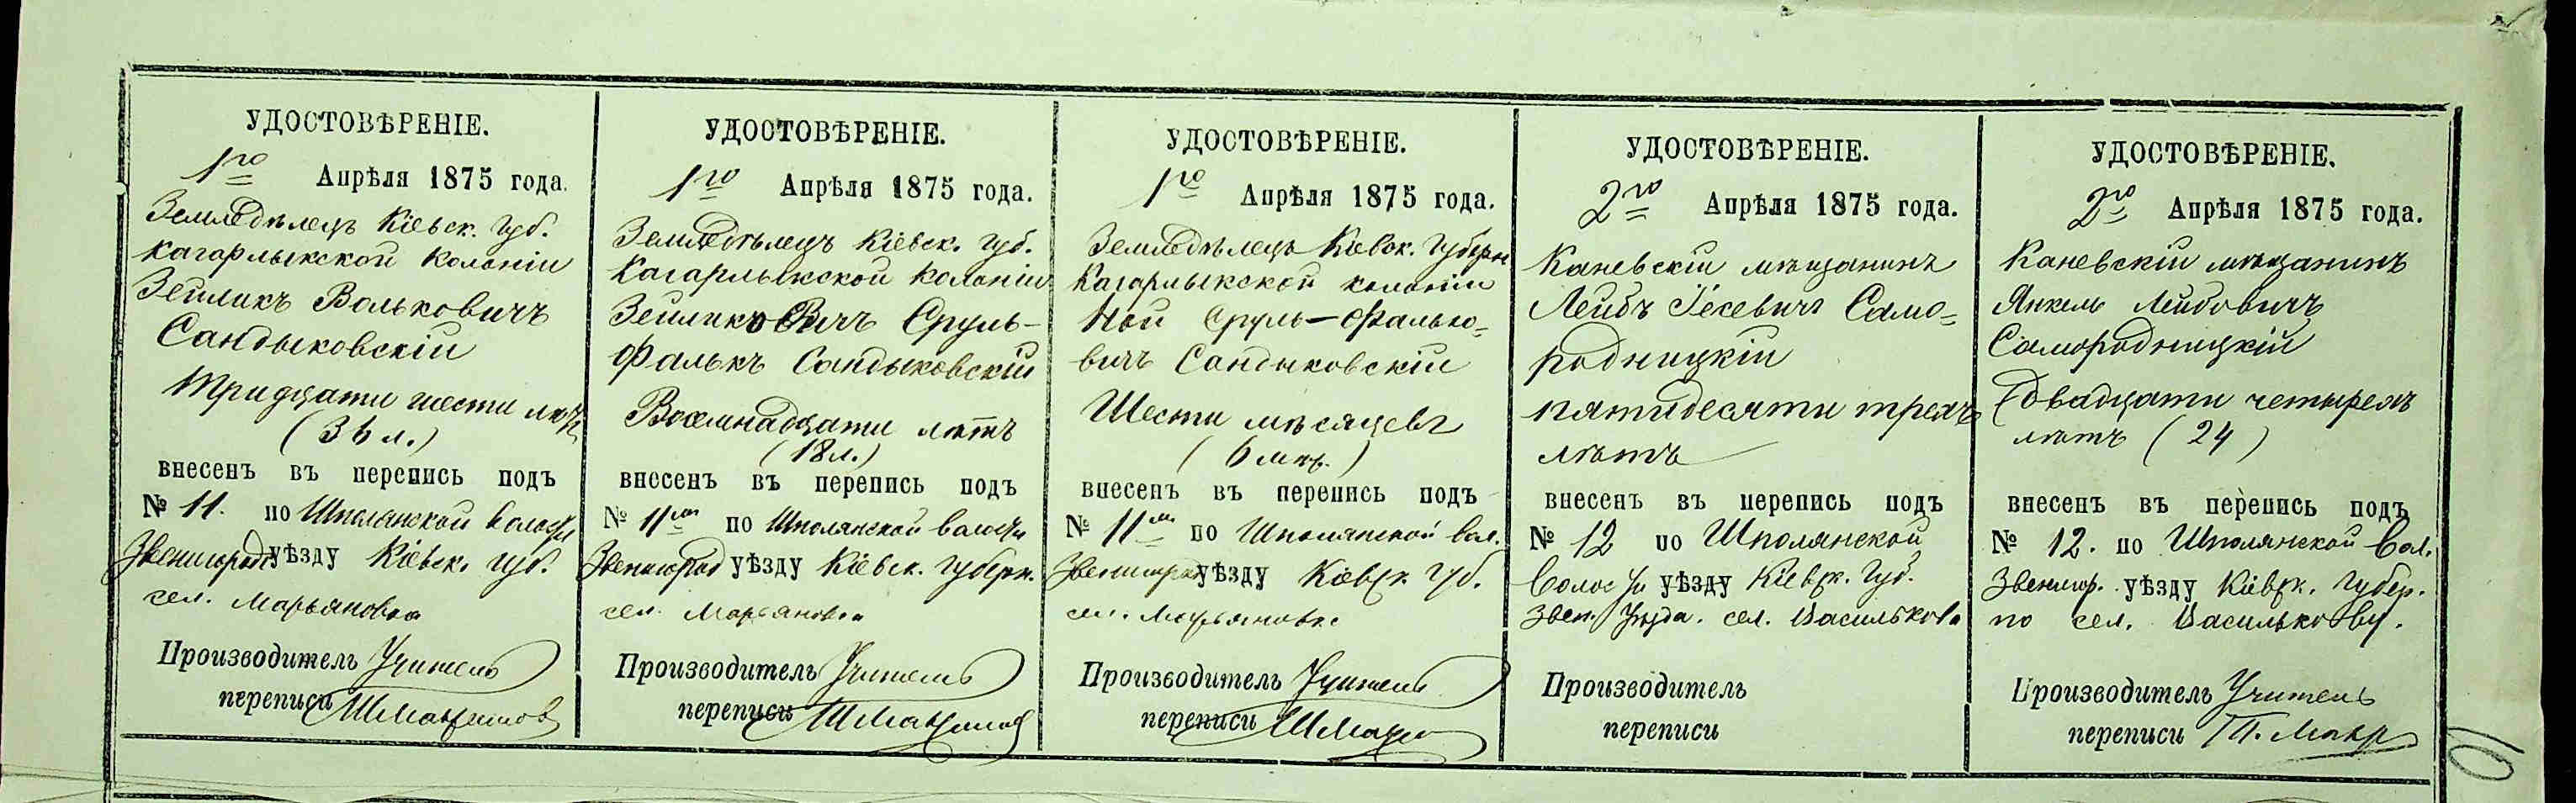 УДОСТОВѢРЕНІЕ.
1го Апрѣля 1875 года.
Земледѣлецъ Кіевск. Губ.
Кагарлыкской колоніи
Зейликъ Вольковичъ
Сандыковскій
Тридцати шести лѣтъ
(36 л.)
внесенъ въ перепись подъ
№ 11. по Шполянской волости
Звенигород уѣзду Кіевск. губ.
сел. Марьяновка
Производитель Учитель
переписи
УДОСТОВѢРЕНІЕ.
1го Апрѣля 1875 года.
Земледѣлецъ Кіевск. Губ.
Кагарлыкской колоніи
Зейликовичъ Сруль-
Фалькъ Сандыковскій
Восемнадцати лѣтъ
(18 л.)
внесенъ въ перепись подъ
№ 11мъ по Шполянской волости
Звенигород уѣзду Кіевск. Губерн.
сел. Марьяновка
Производитель Учитель
переписи
УДОСТОВѢРЕНІЕ.
1го Апрѣля 1875 года.
Земледѣлецъ Кіевск. Губерн
Кагарлыкской колоніи
Ной Сруль-Фалько=
вичъ Сандыковскій
Шести мѣсяцевъ
(6 мѣс.)
внесенъ въ перепись подъ
№ 11мъ по Шполянской вол.
уѣзду Кіевск. Губ.
сел. Марьяновка
Производитель Учитель
переписи
УДОСТОВѢРЕНІЕ.
2го Апрѣля 1875 года.
Каневскій мѣщанинъ
Лейбъ Іосевичъ Само=
родницкій
пятидесяти трехъ
лѣтъ
внесенъ въ перепись подъ
№ 12 по Шполянской
Волости уѣзду Кіевск. Губ.
Звен. Уѣзда. сел. Василькова
Производитель
переписи
УДОСТОВѢРЕНІЕ.
2го Апрѣля 1875 года.
Каневскій мѣщанинъ
Янкель Лейбовичъ
Самородницкій
Двадцати четырехъ
лѣтъ (24)
внесенъ въ перепись подъ
№ 12. по Шполянской Вол.
Звенигор. уѣзду Кіевск. Губер.
по сел. Василькову.
Производитель Учитель
переписи